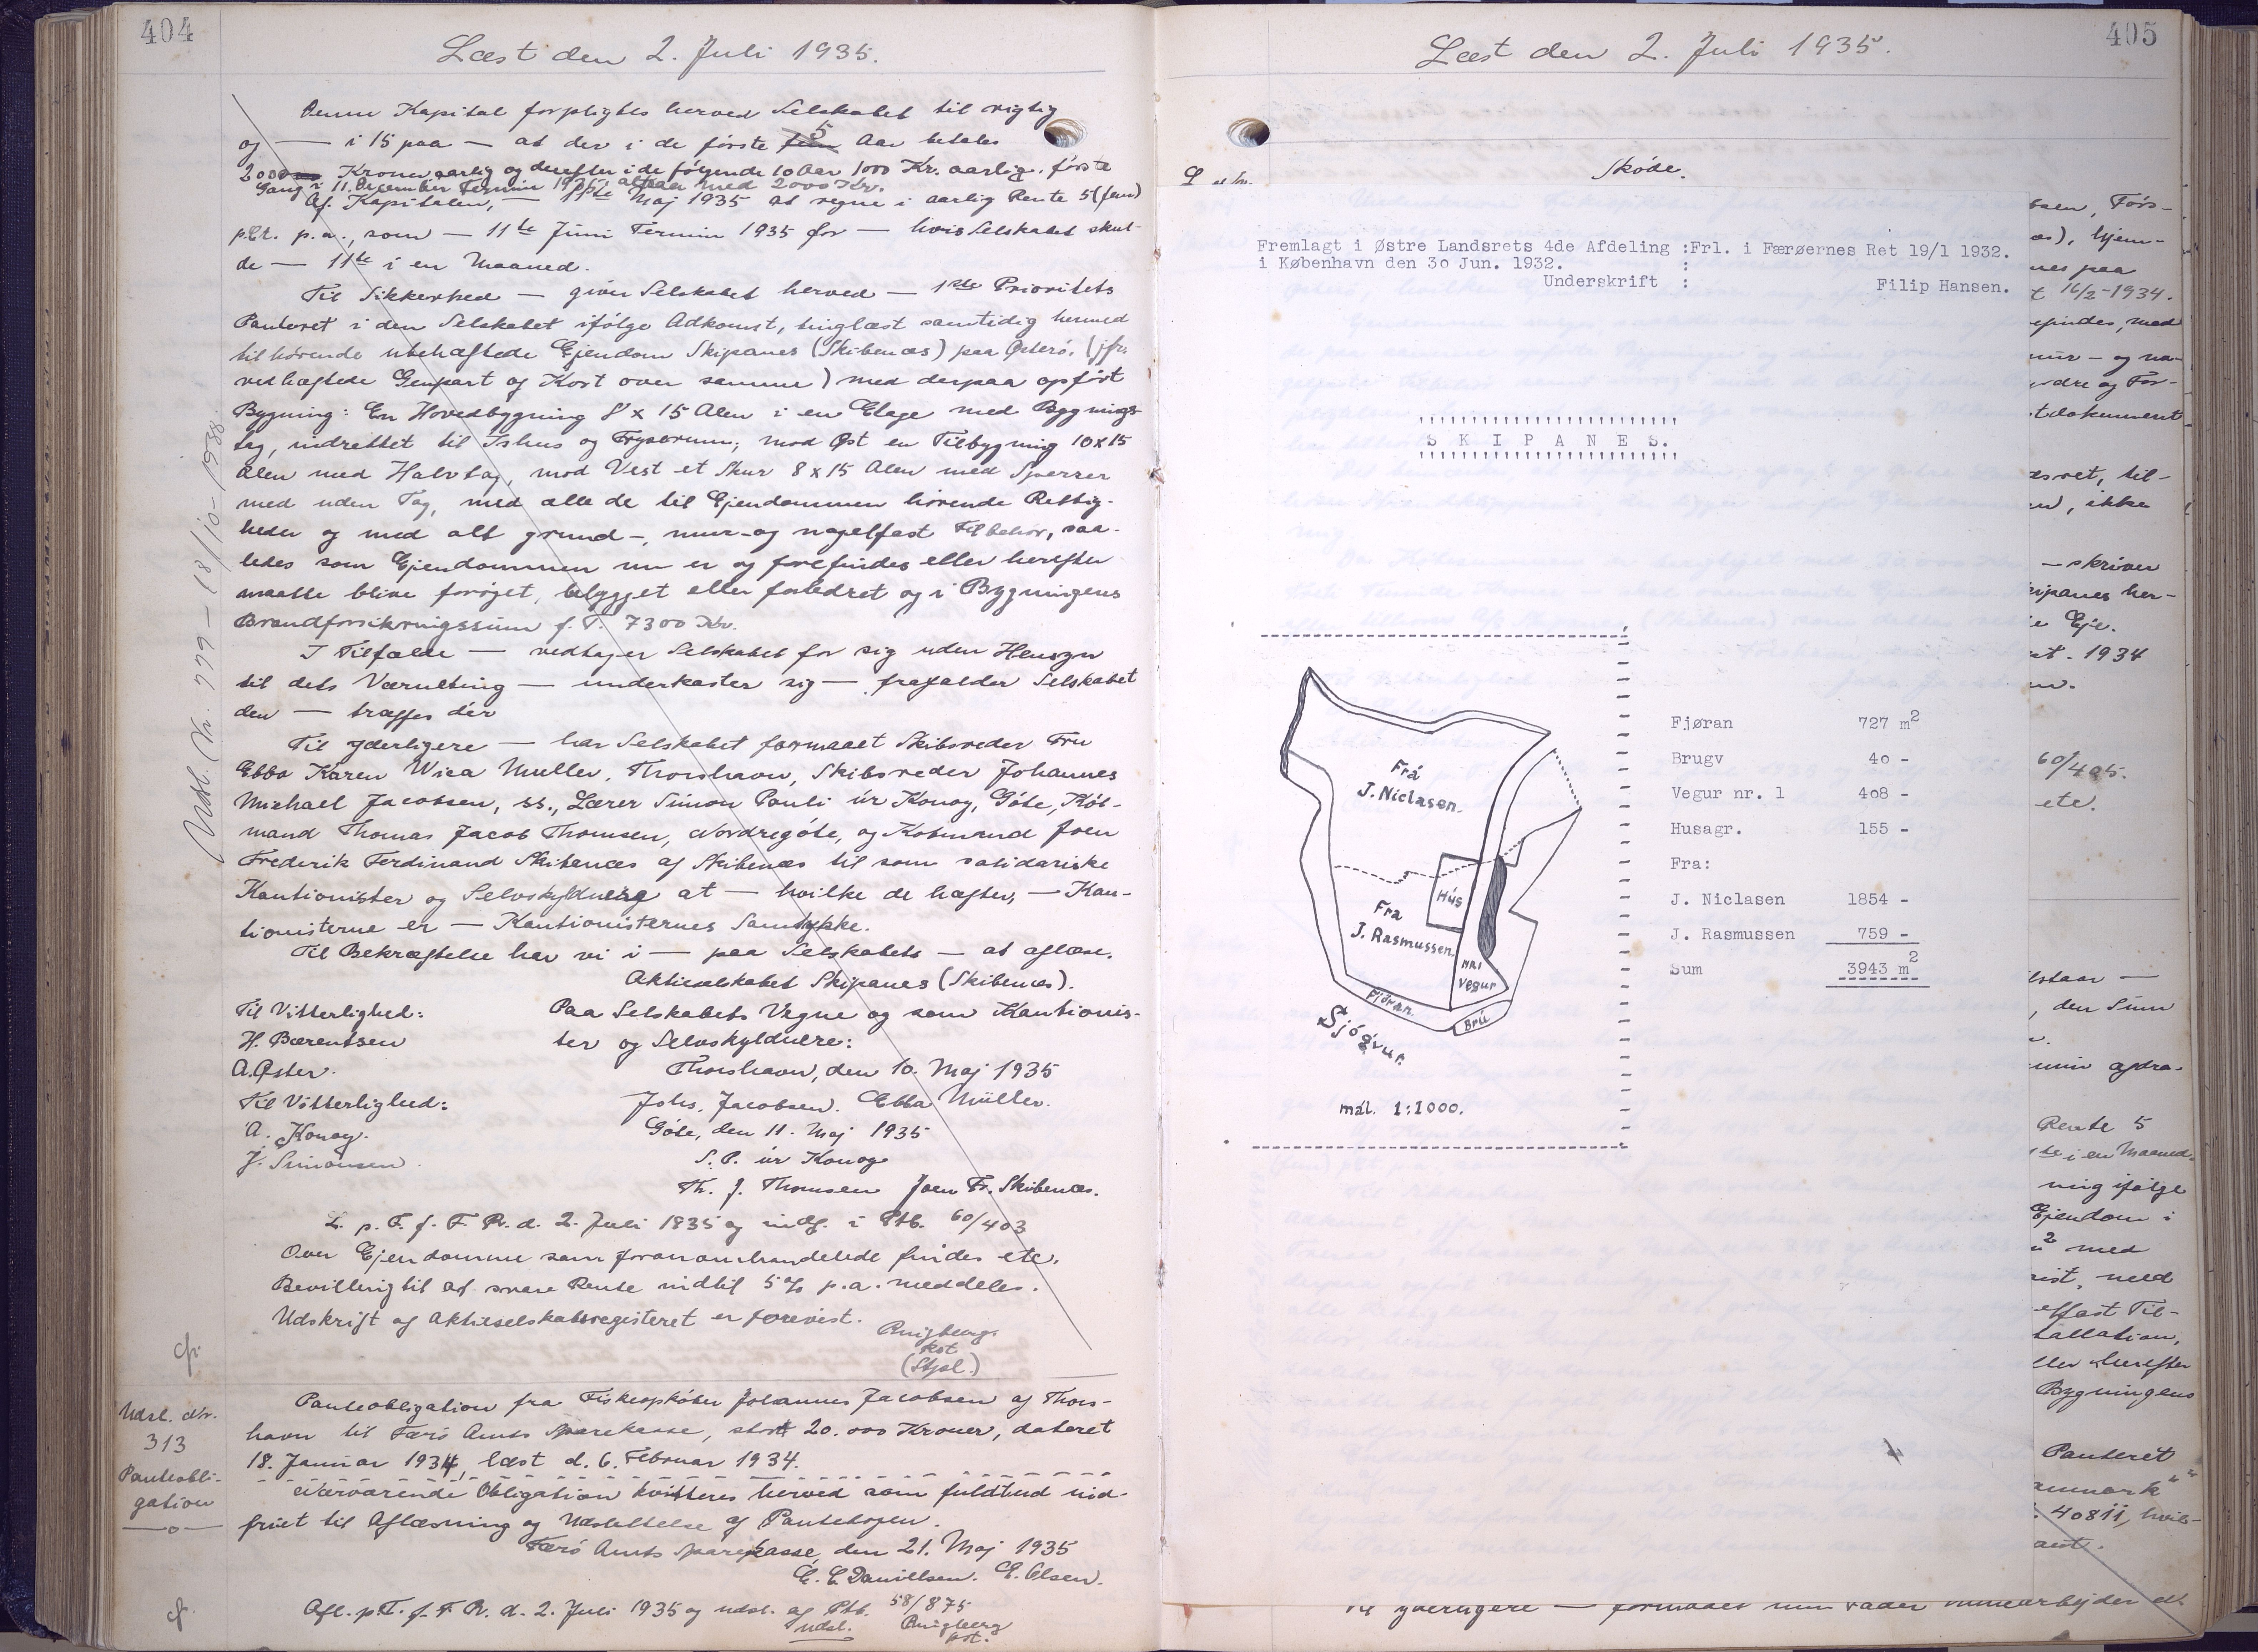 404
Læst den 2. Juli 1935.
Denne Kapital forpligtes herved Selskabet til rigtig
og — i 15 paa — at der i de første 5 Aar betales
2000 Kroner aarlig og derefter i de følgende 10 Aar 1000 Kr. aarlig, første
Gang i 11. December Termin 1935, altsaa med 2000 Kr.
Af Kapitalen, — 11te Maj 1935 at regne i aarlig Rente 5 (fem)
pCt. p.a., som — 11te Juni Termin 1935 for — hvis Selskabet skul-
de — 11te i en Maaned.
Til Sikkerhed — giver Selskabet herved — 1ste Prioritets
Panteret i den Selskabet ifølge Adkomst, tinglæst samtidig hermed
tilhørende ubehæftede Ejendom Skipanes (Skibenæs) paa Østerø, (jfr.
vedhæftede Genpart og Kort over samme) med derpaa opført
Bygning: En Hovedbygning 8 x 15 Alen i en Etage med Bygnings-
tag, indrettet til Ishus og Fryserum; mod Øst en Tilbygning 10x15
Alen med Halvtag, mod Vest et Skur 8x15 Alen med Sperrer
med uden Tag, med alle de til Ejendommen hørende Rettig-
heder og med alt grund-, mur- og nagelfast Tilbehør, saa-
ledes som Ejendommen nu er og forefindes eller herefter
maatte blive forøget, bebygget eller forbedret og i Bygningens
Brandforsikringssum f.T. 7300 Kr.
I Tilfælde — vedtager Selskabet for sig uden Hensyn
til dets Værneting — underkaster sig — frafalder Selskabet
den — træffes dér
Til yderligere — har Selskabet formaaet Skibsreder Fru
Ebba Karen Wiea Muller, Thorshavn, Skibsreder Johannes
Michael Jacobsen, ss., Lærer Simon Pauli úr Konoy, Gøte, Køb-
mand Thomas Jacob Thomsen, Nordregøte, og Købmand Joen
Frederik Ferdinand Skibenæs af Skibenæs til som solidariske
Kautionister og Selvskyldnere at — hvilke de hæfter, — Kau-
tionisterne er — Kautionisternes Samtykke.
Til Bekræftelse har vi i — paa Selskabets — at aflæse.
Aktieselskabet Skipanes (Skibenæs).
Til Vitterlighed: Paa Selskabets Vegne og som Kautionis-
H. Bærentsen ter og Selvskyldnere:
A. Øster. Thorshavn, den 10. Maj 1935
Til Vitterlighed: Johs. Jacobsen. Ebba Müller.
A. Konoy. Gøte, den 11. Maj 1935
J. Simonsen. S. P. úr Konoy
Th. J. Thomsen Joen Fr. Skibenæs.
L. p. T. f. F. R. d. 2. Juli 1835 og indf. i Ptb. 60/403
Over Ejendomme som foranomhandelede findes etc.
Bevilling til at svare Rente indtil 5% p.a. meddeles.
Udskrift af Aktieselskabsregisteret er forevist.
Ringberg
kst.
(Stpl.)
Udsl. Nr. 779 - 18/10-1938
cfr.
Udsl. Nr.
313
Panteobli-
gation
Panteobligation fra Fiskeopkøber Johannes Jacobsen af Thors-
havn til Færø Amts Sparekasse, stort 20.000 Kroner, dateret
18. Januar 1934, læst d. 6. Februar 1934.
Nærværende Obligation kvitteres herved som fuldtud ind-
friet til Aflæsning og Udslettelse af Pantebogen.
Færø Amts Sparekasse, den 21. Maj 1935
E. E. Danielsen. E. Olsen.
Afl. p. T. f. F. R. d. 2. Juli 1935 og udsl. af Ptb. 58/875
udsl. Ringberg
kst.
cfr.
405
Læst den 2. Juli 1935.
Skøde.
Fremlagt i Østre Landsrets 4de Afdeling :Frl. i Færøernes Ret 19/1 1932.
i København den 30 Jun. 1932. :
Underskrift : Filip Hansen.
S K I P A N E S.
Frá
J. Niclasen.
Hús
Fra
J. Rasmussen.
NR 1
Vegur
Fjöran.
Brú
Sjógvur.
mál. 1:1000.
Fjøran 727 m2
Brugv 40 -
Vegur nr. 1 408 -
Husagr. 155 -
Fra:
J. Niclasen 1854 -
J. Rasmussen 759 -
Sum 3943 m2
bsen, Førs-
æs), hjem-
nes paa
t 16/2-1934.
efindes, med
mur- og na-
ndre og For-
tdokument
sret, til-
en), ikke
— skriver
kipanes her-
e Eje.
pt. 1934
60/405.
etc.
lstaar —
, den Sum
min opdra-
Rente 5
te i en Maaned.
ning ifølge
Ejendom i
m2 med
rist, med
elfast Til-
tallation,
ller herefter
Bygningens
Panteret
anmark"
: 40811, hvis-
æst.
Til yderligere — formaaet min Fader